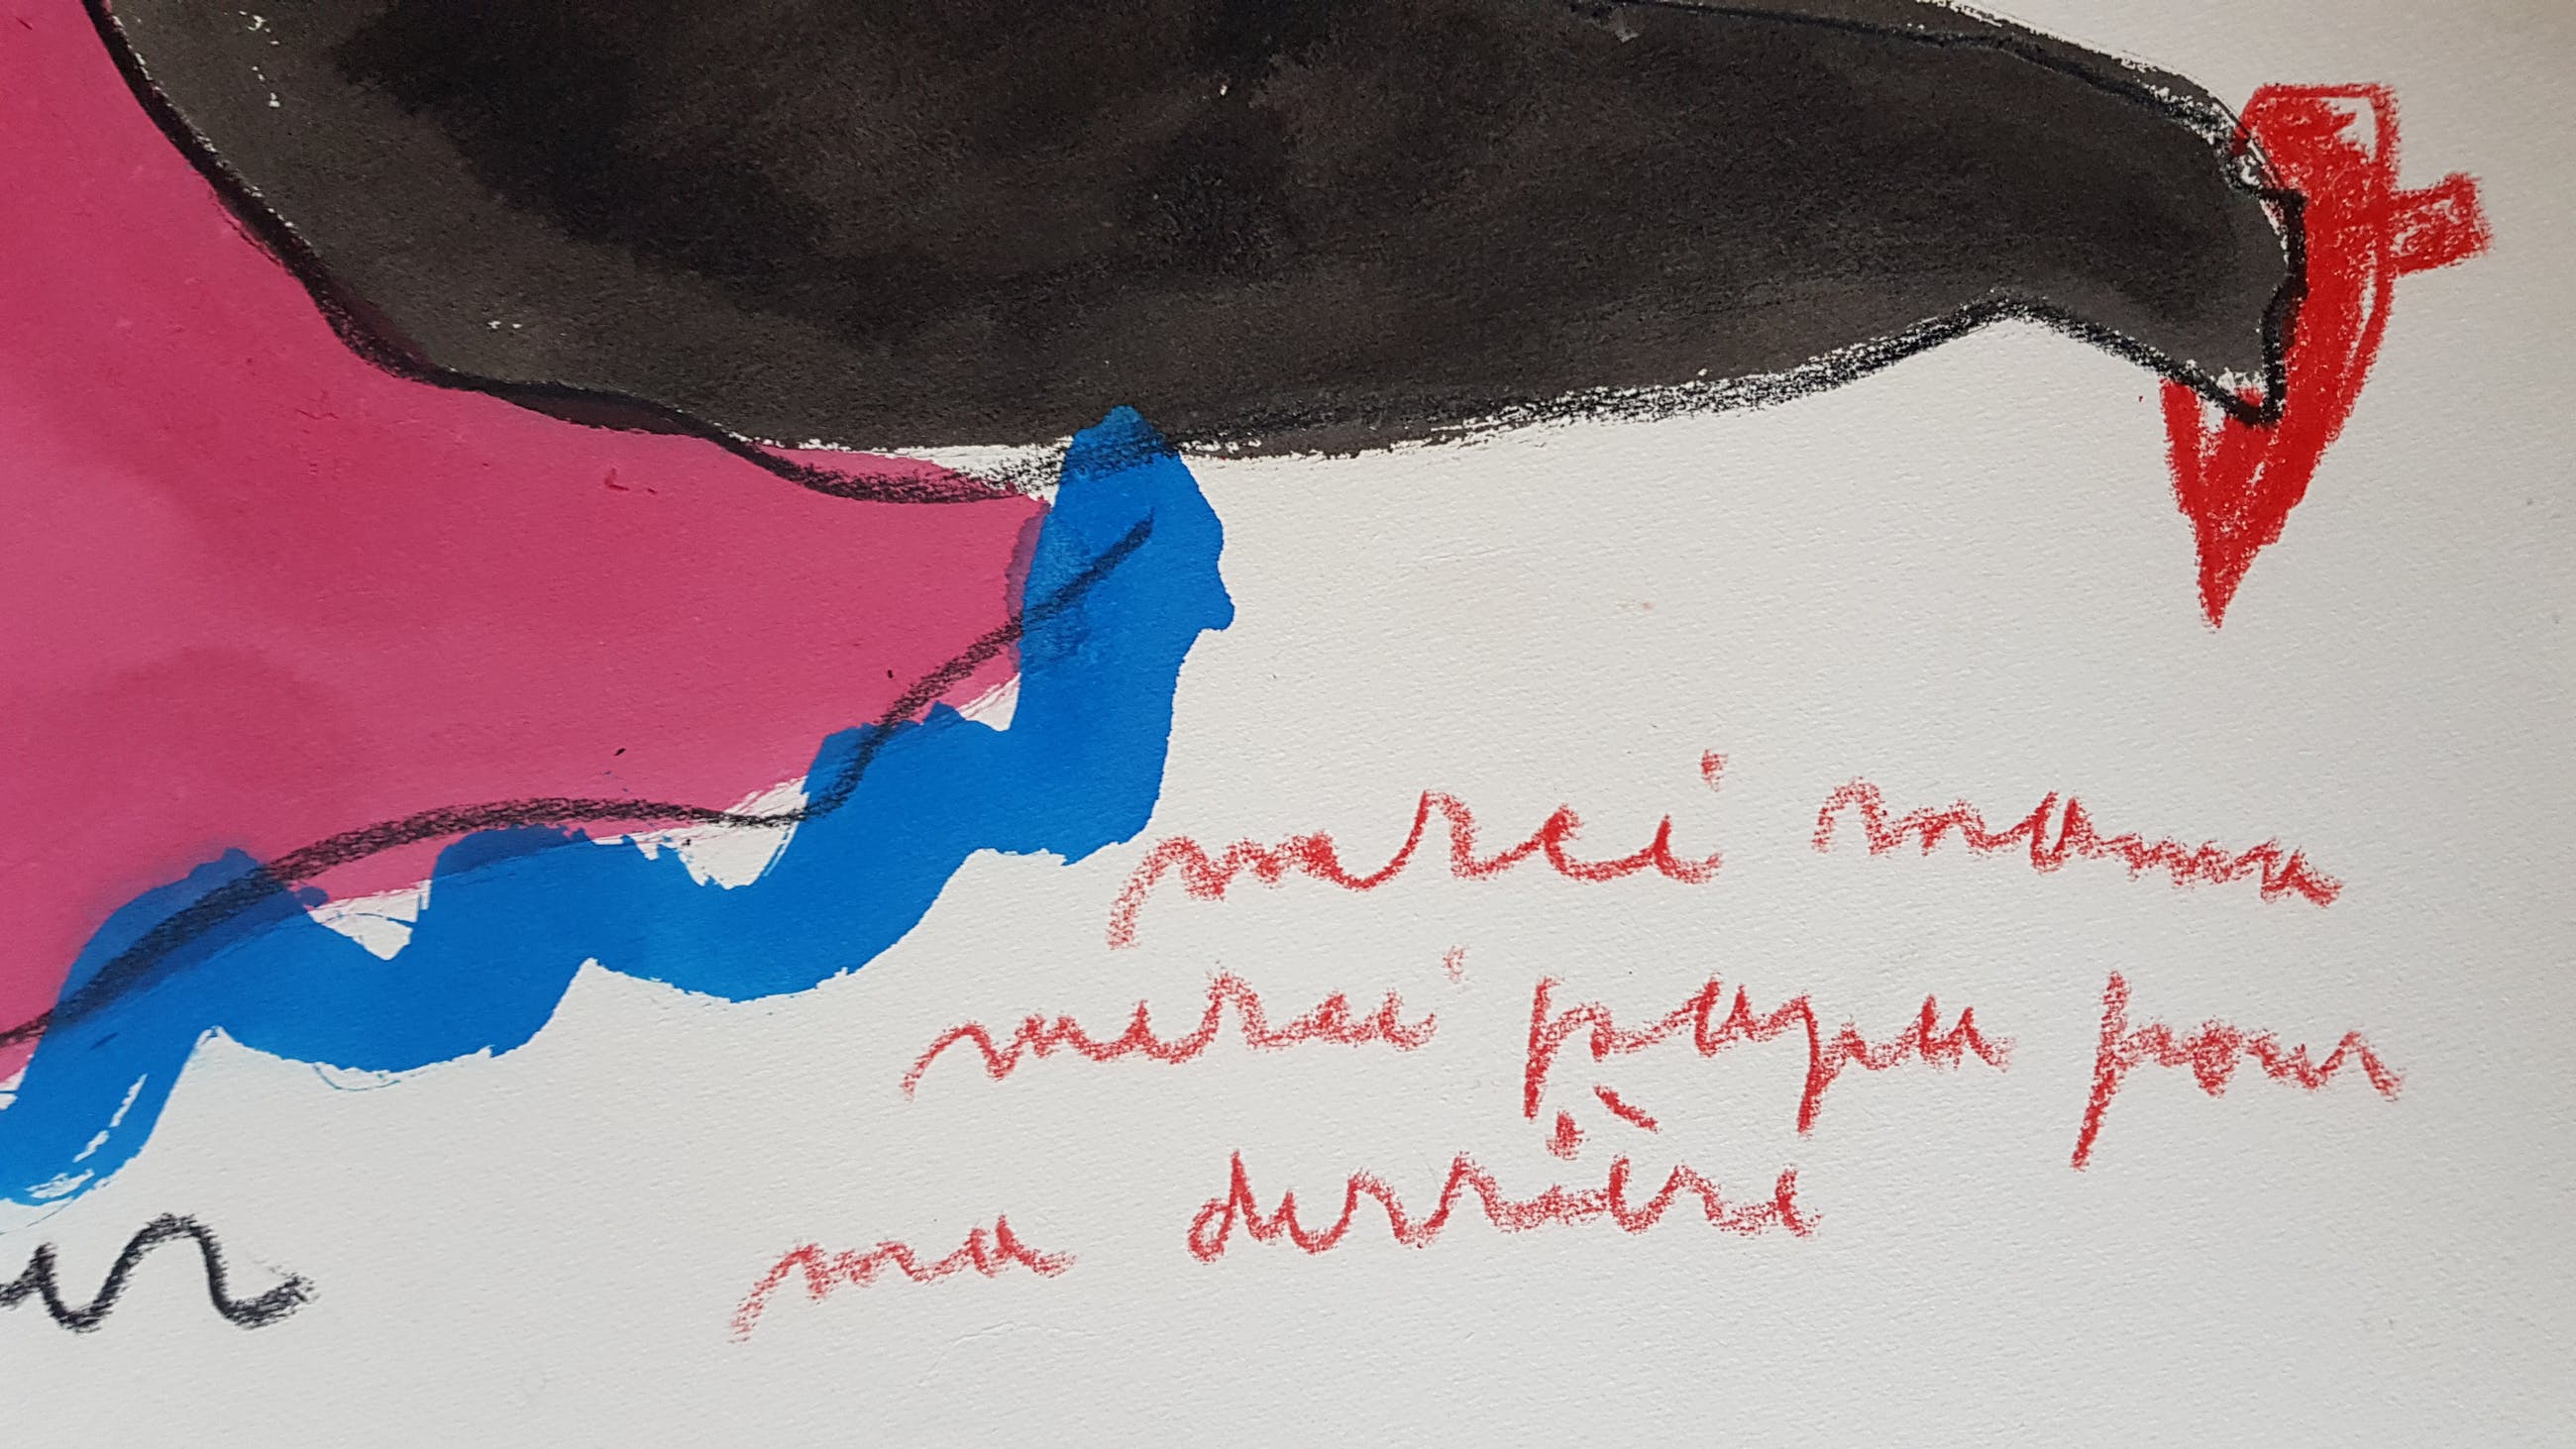 merci mama
merci papa pour
ma derrière